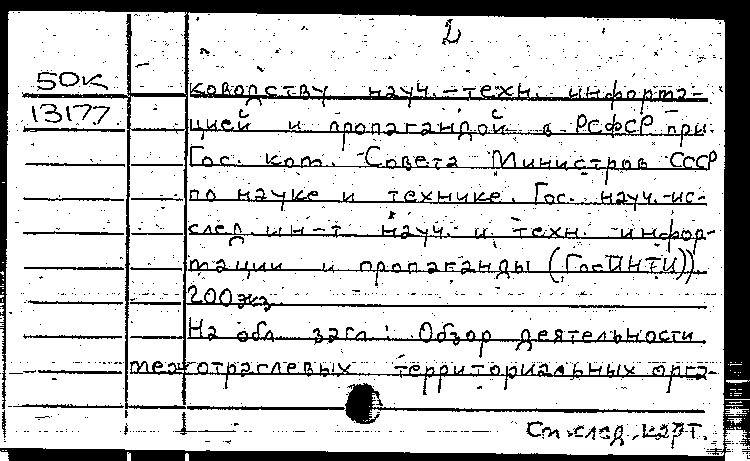 2
50к
13177
ководству науч.-техн. информа-
цией и пропагандой в РСФСР при
Гос. ком. Совета Министров СССР
по науке и технике. Гос. науч.-ис-
след. ин-т науч. и техн. инфор-
мации и пропаганды (ГосИНТИ)).
200 экз
На обл. загл.: Обзор деятельности
межотраслевых территориальных орга-
См. след. карт.